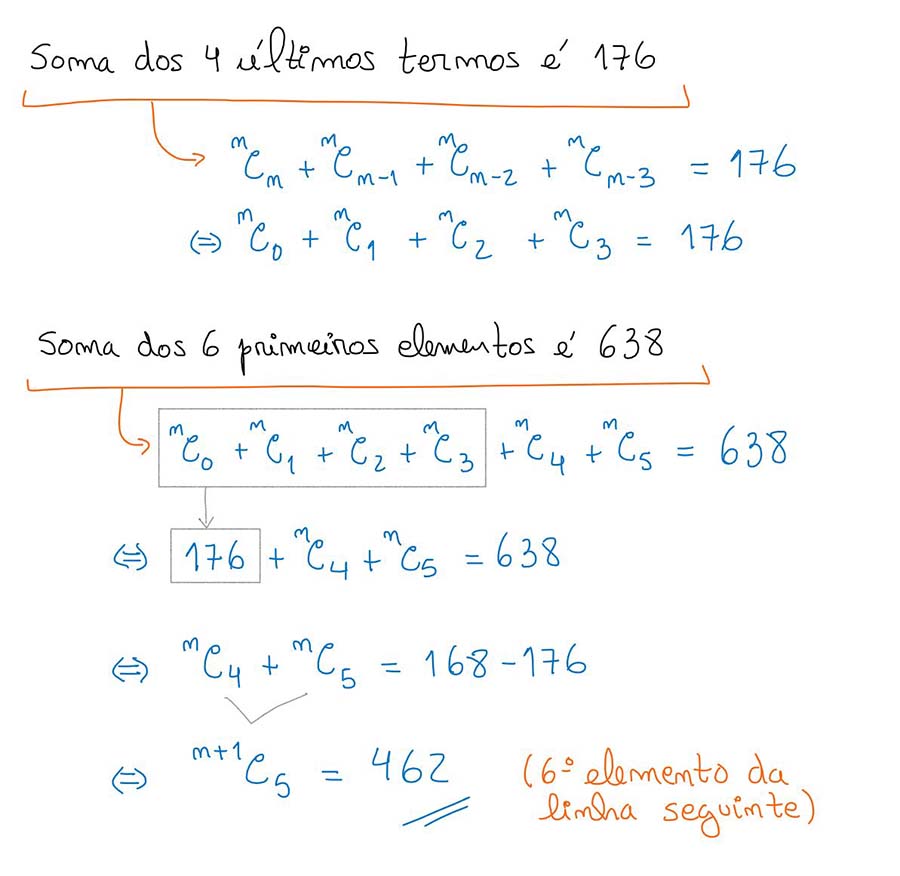 Soma dos 4 últimos termos é 176
ⁿCₙ + ⁿCₙ₋₁ + ⁿCₙ₋₂ + ⁿCₙ₋₃ = 176
⇔ ⁿC₀ + ⁿC₁ + ⁿC₂ + ⁿC₃ = 176
Soma dos 6 primeiros elementos é 638
ⁿC₀ + ⁿC₁ + ⁿC₂ + ⁿC₃ + ⁿC₄ + ⁿC₅ = 638
⇔ 176 + ⁿC₄ + ⁿC₅ = 638
⇔ ⁿC₄ + ⁿC₅ = 168 - 176
⇔ ⁿ⁺¹C₅ = 462 (6º elemento da
linha seguinte)